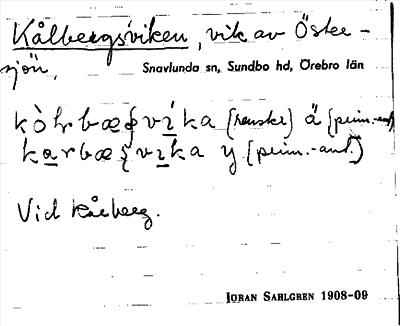 Kålbergsviken, vik av Öster-
sjön,
Snavlunda sn, Sundbo hd, Örebro län
kòhrbæꞩvika (henske) ä (prim.-ant.)
karbæꞩvika y (prim.-ant.)
Vid Kårberg.
JÖRAN SAHLGREN 1908-09